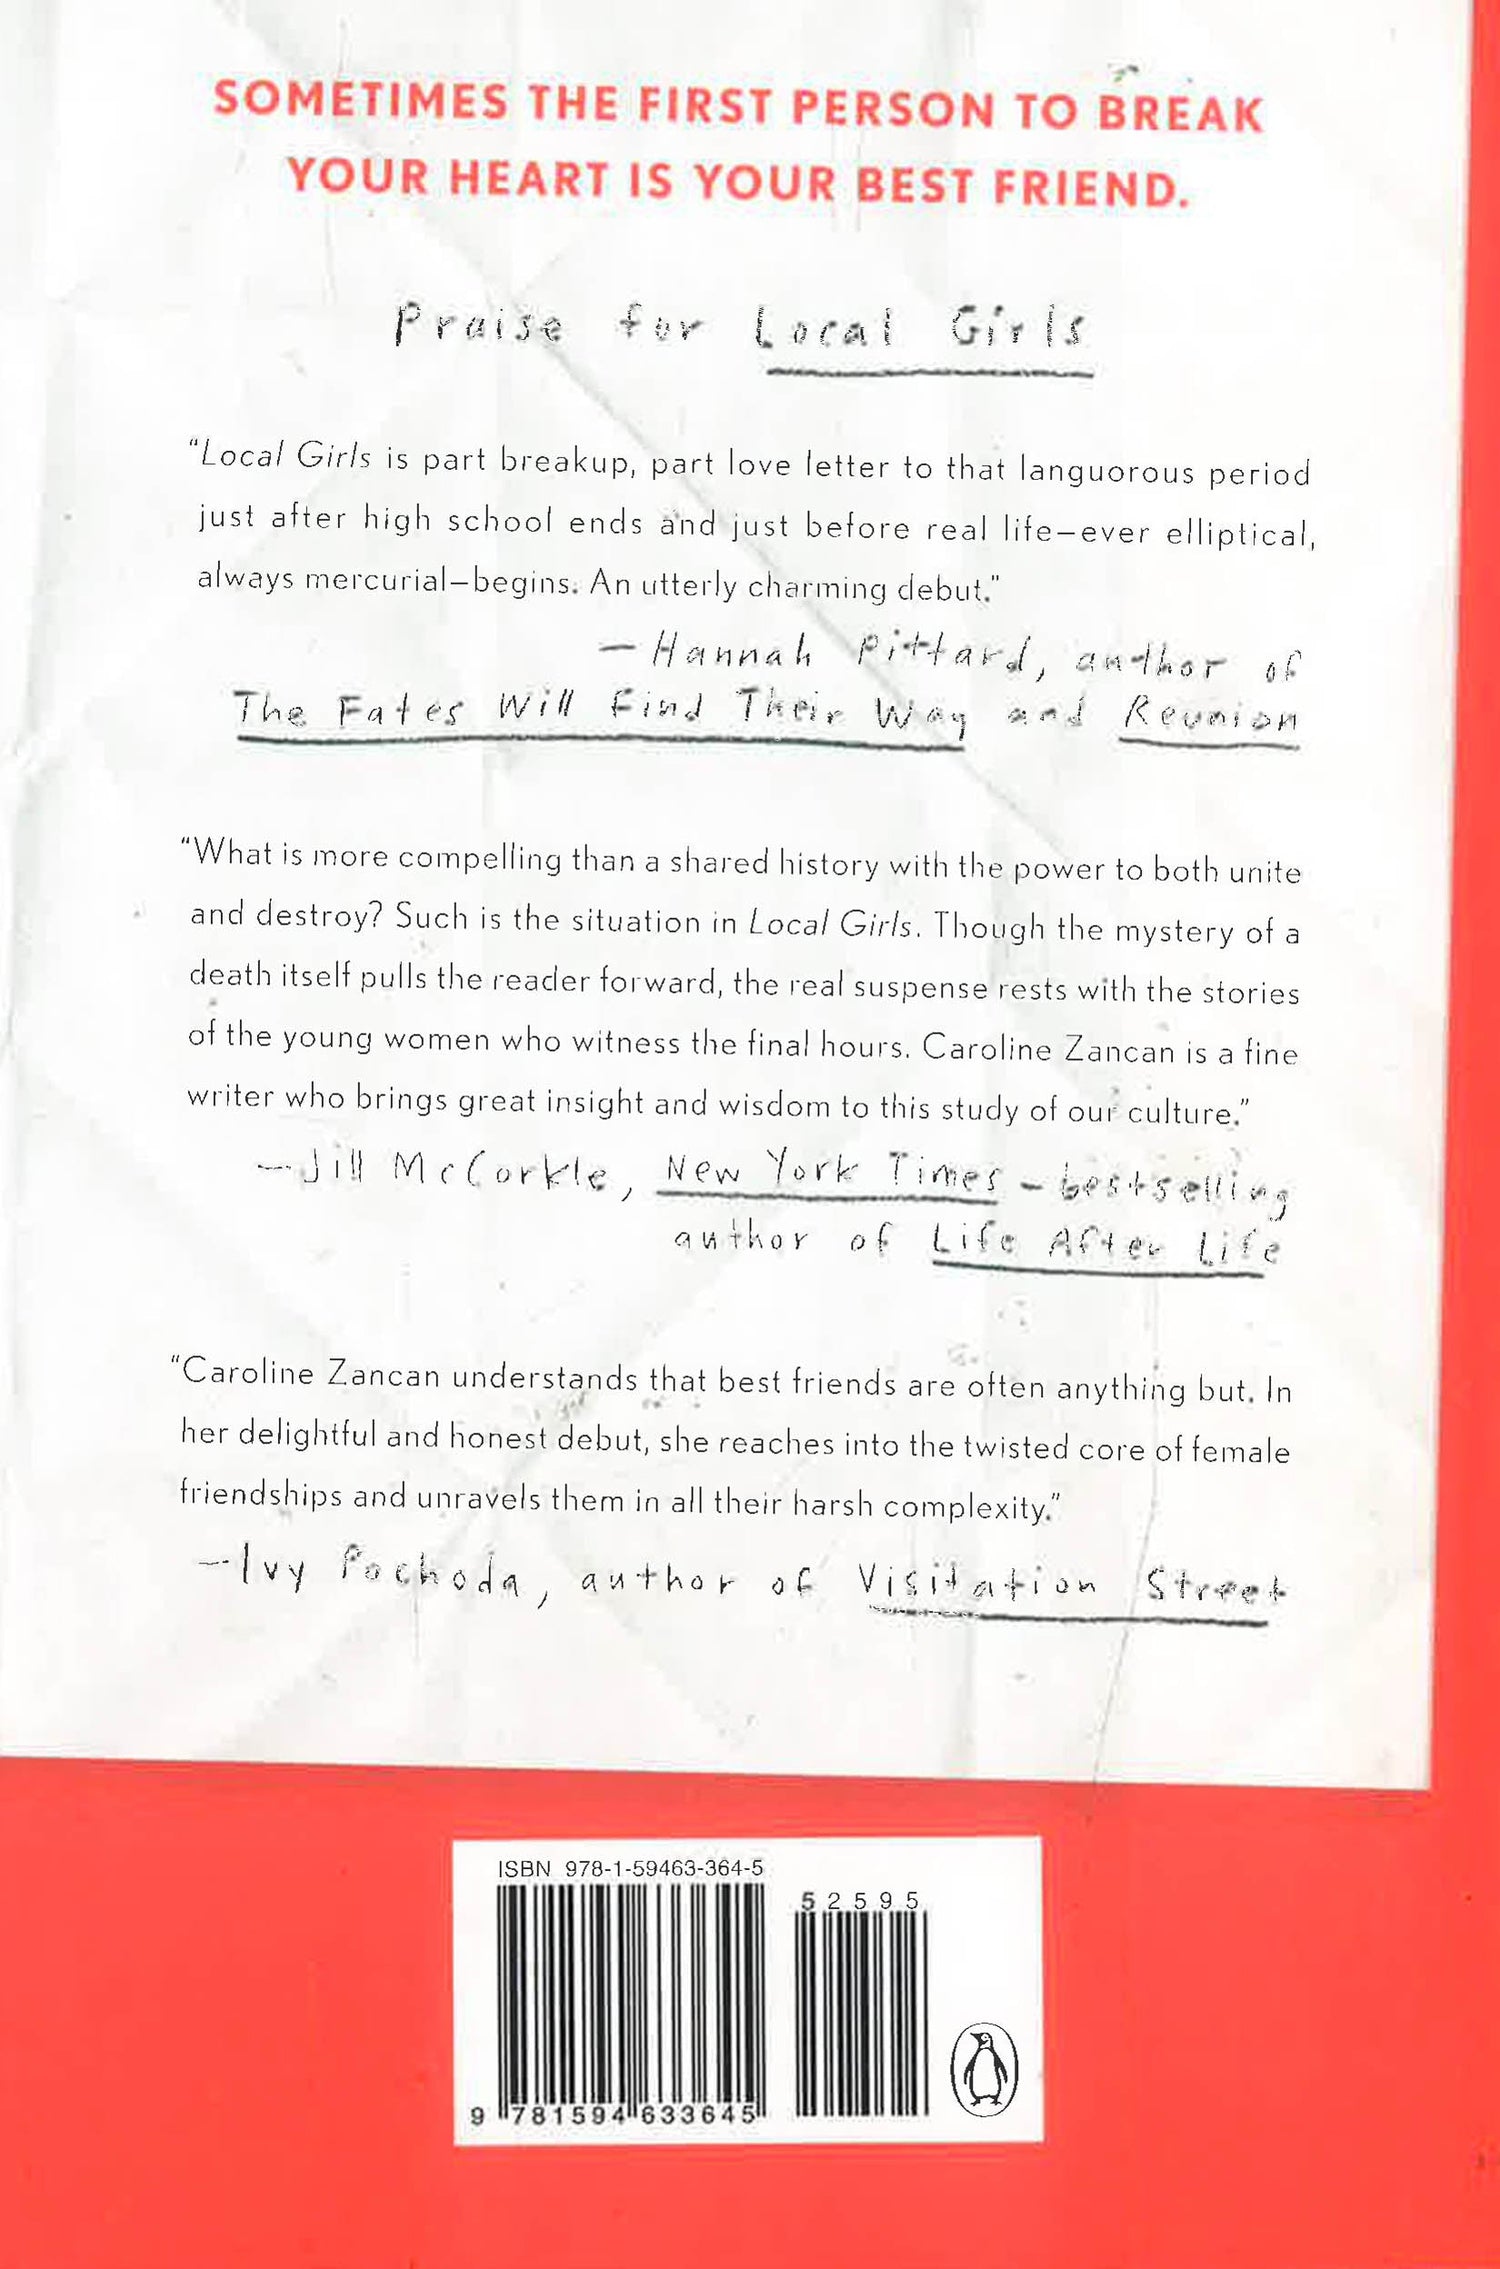 SOMETIMES THE FIRST PERSON TO BREAK
YOUR HEART IS YOUR BEST FRIEND.
Praise for Local Girls
“Local Girls is part breakup, part love letter to that languorous period
just after high school ends and just before real life—ever elliptical,
always mercurial—begins. An utterly charming debut.”
—Hannah Pittard, author of
The Fates Will Find Their Way and Reunion
“What is more compelling than a shared history with the power to both unite
and destroy? Such is the situation in Local Girls. Though the mystery of a
death itself pulls the reader forward, the real suspense rests with the stories
of the young women who witness the final hours. Caroline Zancan is a fine
writer who brings great insight and wisdom to this study of our culture.”
—Jill McCorkle, New York Times-bestselling
author of Life After Life
“Caroline Zancan understands that best friends are often anything but. In
her delightful and honest debut, she reaches into the twisted core of female
friendships and unravels them in all their harsh complexity.”
—Ivy Pochoda, author of Visitation Street
ISBN 978-1-59463-364-5
52595
9 781594 633645